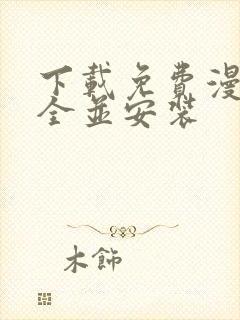 下載免費漫
全並安裝
木飾